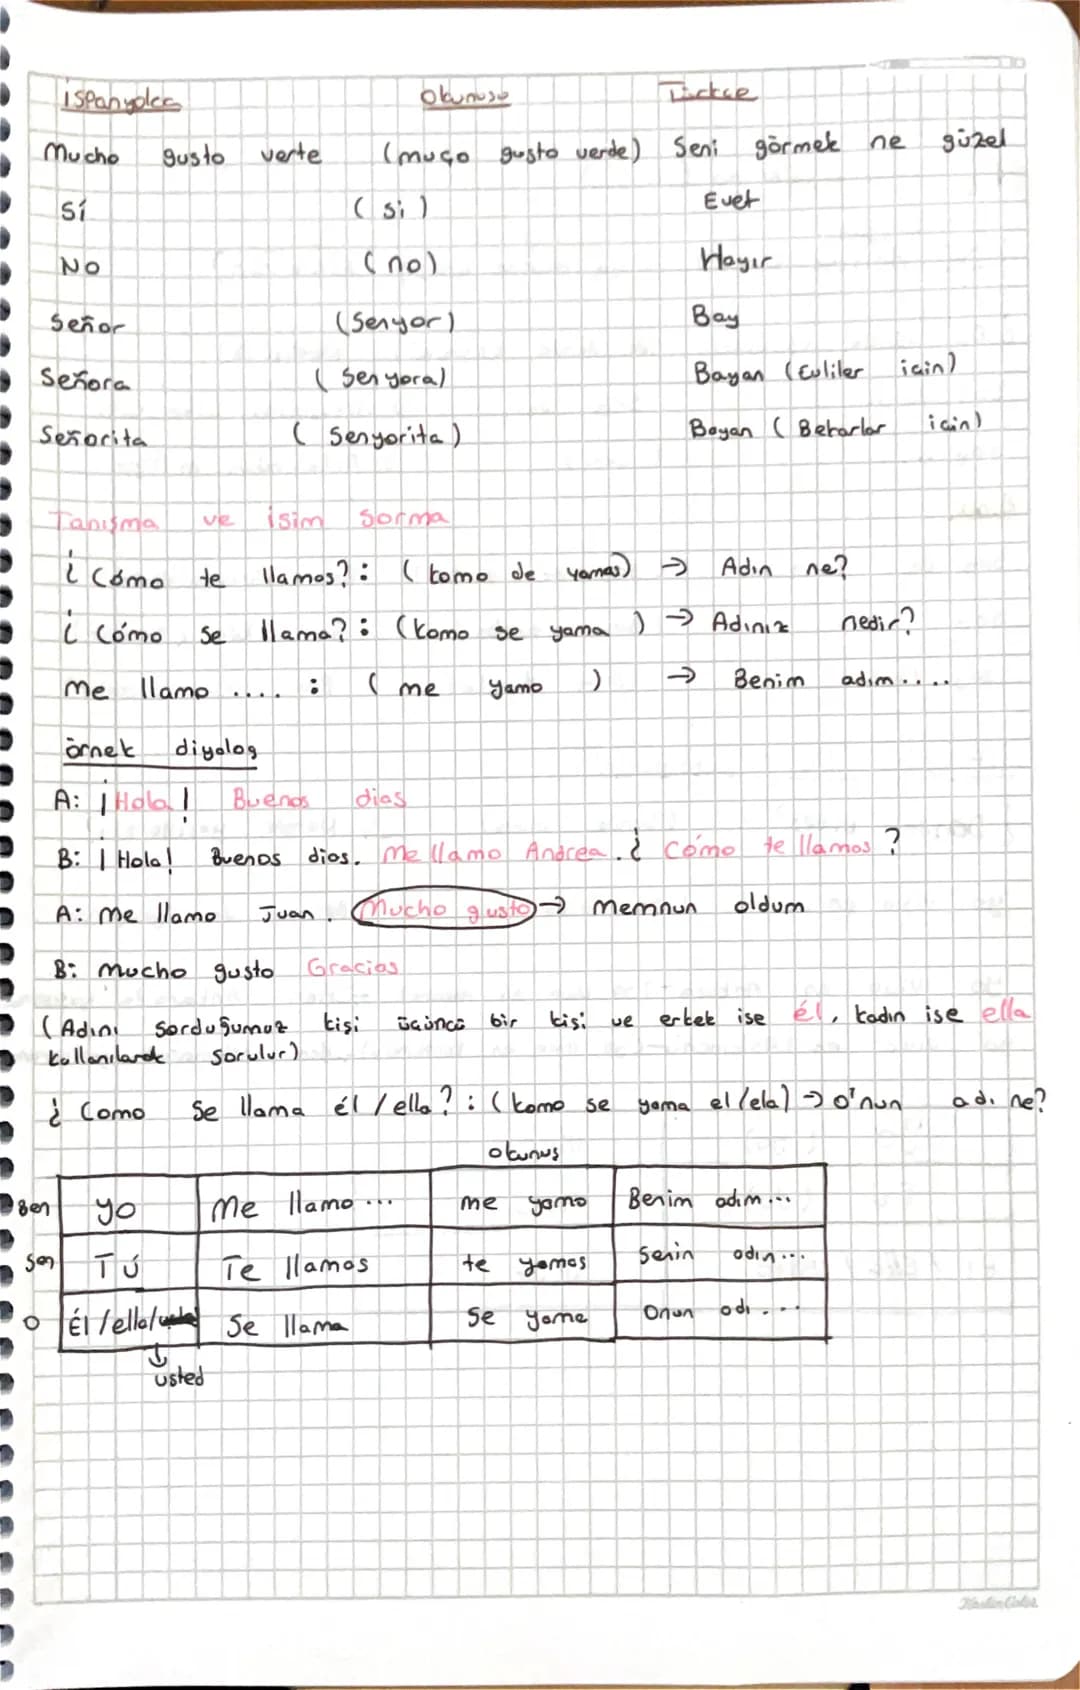 İspanyolca Okunuşu Türkçe
Mucho gusto verte (muço gusto verde) Seni görmek ne güzel
Sí (si) Evet
No (no) Hayır
Señor (Senyor) Bay
Señora (Senyora) Bayan (Evliler için)
Señorita (Senyorita) Bayan (Bekarlar için)
Tanışma ve isim sorma
¿Cómo te llamas?: (komo de yamas) → Adın ne?
¿Cómo se llama?: (komo se yama) → Adınız nedir?
Me llamo ....: (me yamo) → Benim adım....
örnek diyalog
A: ¡Hola! Buenos dias
B: ¡Hola! Buenos dias. Me llamo Andrea. ¿Cómo te llamas?
A: Me llamo Juan. Mucho gusto → Memnun oldum
B: Mucho gusto Gracias
(Adını sorduğumuz kişi üçüncü bir kişi ve erkek ise él, kadın ise ella
kullanılarak sorulur)
¿Como se llama él/ella?: (komo se yama el/ela) → O'nun adı ne?
okunuş
Ben yo Me llamo... me yamo Benim adım...
Sen Tú Te llamas te yamas Senin adın...
O Él/ella/ Se llama Se yama Onun adı....
↓
usted